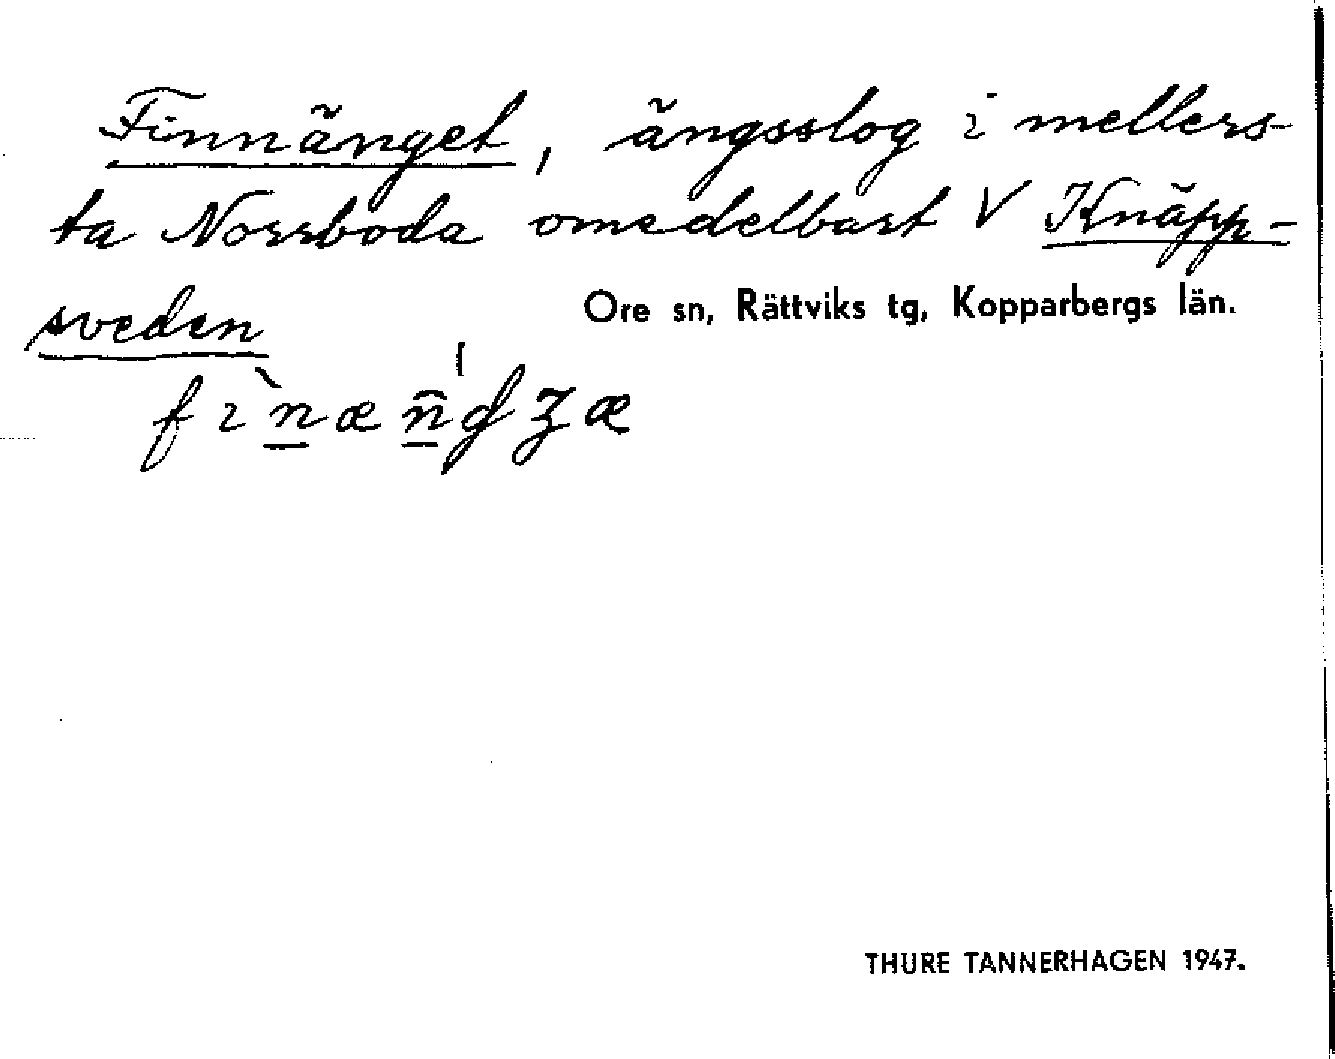 Finnänget, ängsslog i mellers-
ta Norrboda omedelbart V Knäpp-
sveden
Ore sn, Rättviks tg, Kopparbergs län.
THURE TANNERHAGEN 1947.